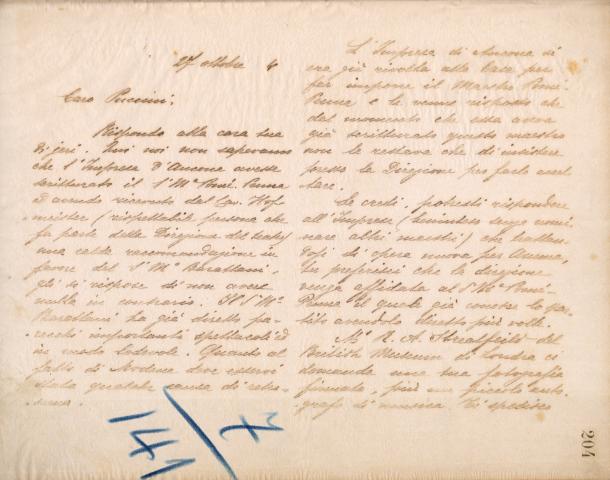 27 ottobre 4
Caro Puccini,
Rispondo alla cara tua
di ieri. Qui noi non sapevamo
che l'Impresa d'Ancona avesse
scritturato il S.r M.o Pomé-Penna
ed avendo ricevuto dal Cav. Hof-
meister (rispettabile persona che
fa parte della Direzione del teatro)
una calda raccomandazione in
favore del S.r M.o Barattani,
gli si rispose di non avere
nulla in contrario. Il S.r M.o
Barattani ha già diretto pa-
recchi importanti spettacoli ed
in modo lodevole. Quanto al
fatto di Modena deve esservi
stata qualche causa di
L'Impresa di Ancona si
era già rivolta alla Casa per
far imporre il Maestro Pomé-
Penna e le venne risposto che
dal momento che essa aveva
già scritturato questo maestro
non le restava che di insistere
presso la Direzione per farlo accet-
tare.
Se credi, potresti rispondere
all'Impresa (beninteso senza nomi-
nare altri maestri) che trattan-
dosi di opera nuova per Ancona,
tu preferisci che la direzione
venga affidata al S.r M.o Pomé-
Penna il quale già conosce lo spar-
tito avendolo diretto più volte.
M.r R. A. Streatfeild del
British Museum di Londra ci
domanda una tua fotografia
firmata, più un piccolo auto-
grafo di musica. Ti spedisco
7/141
204